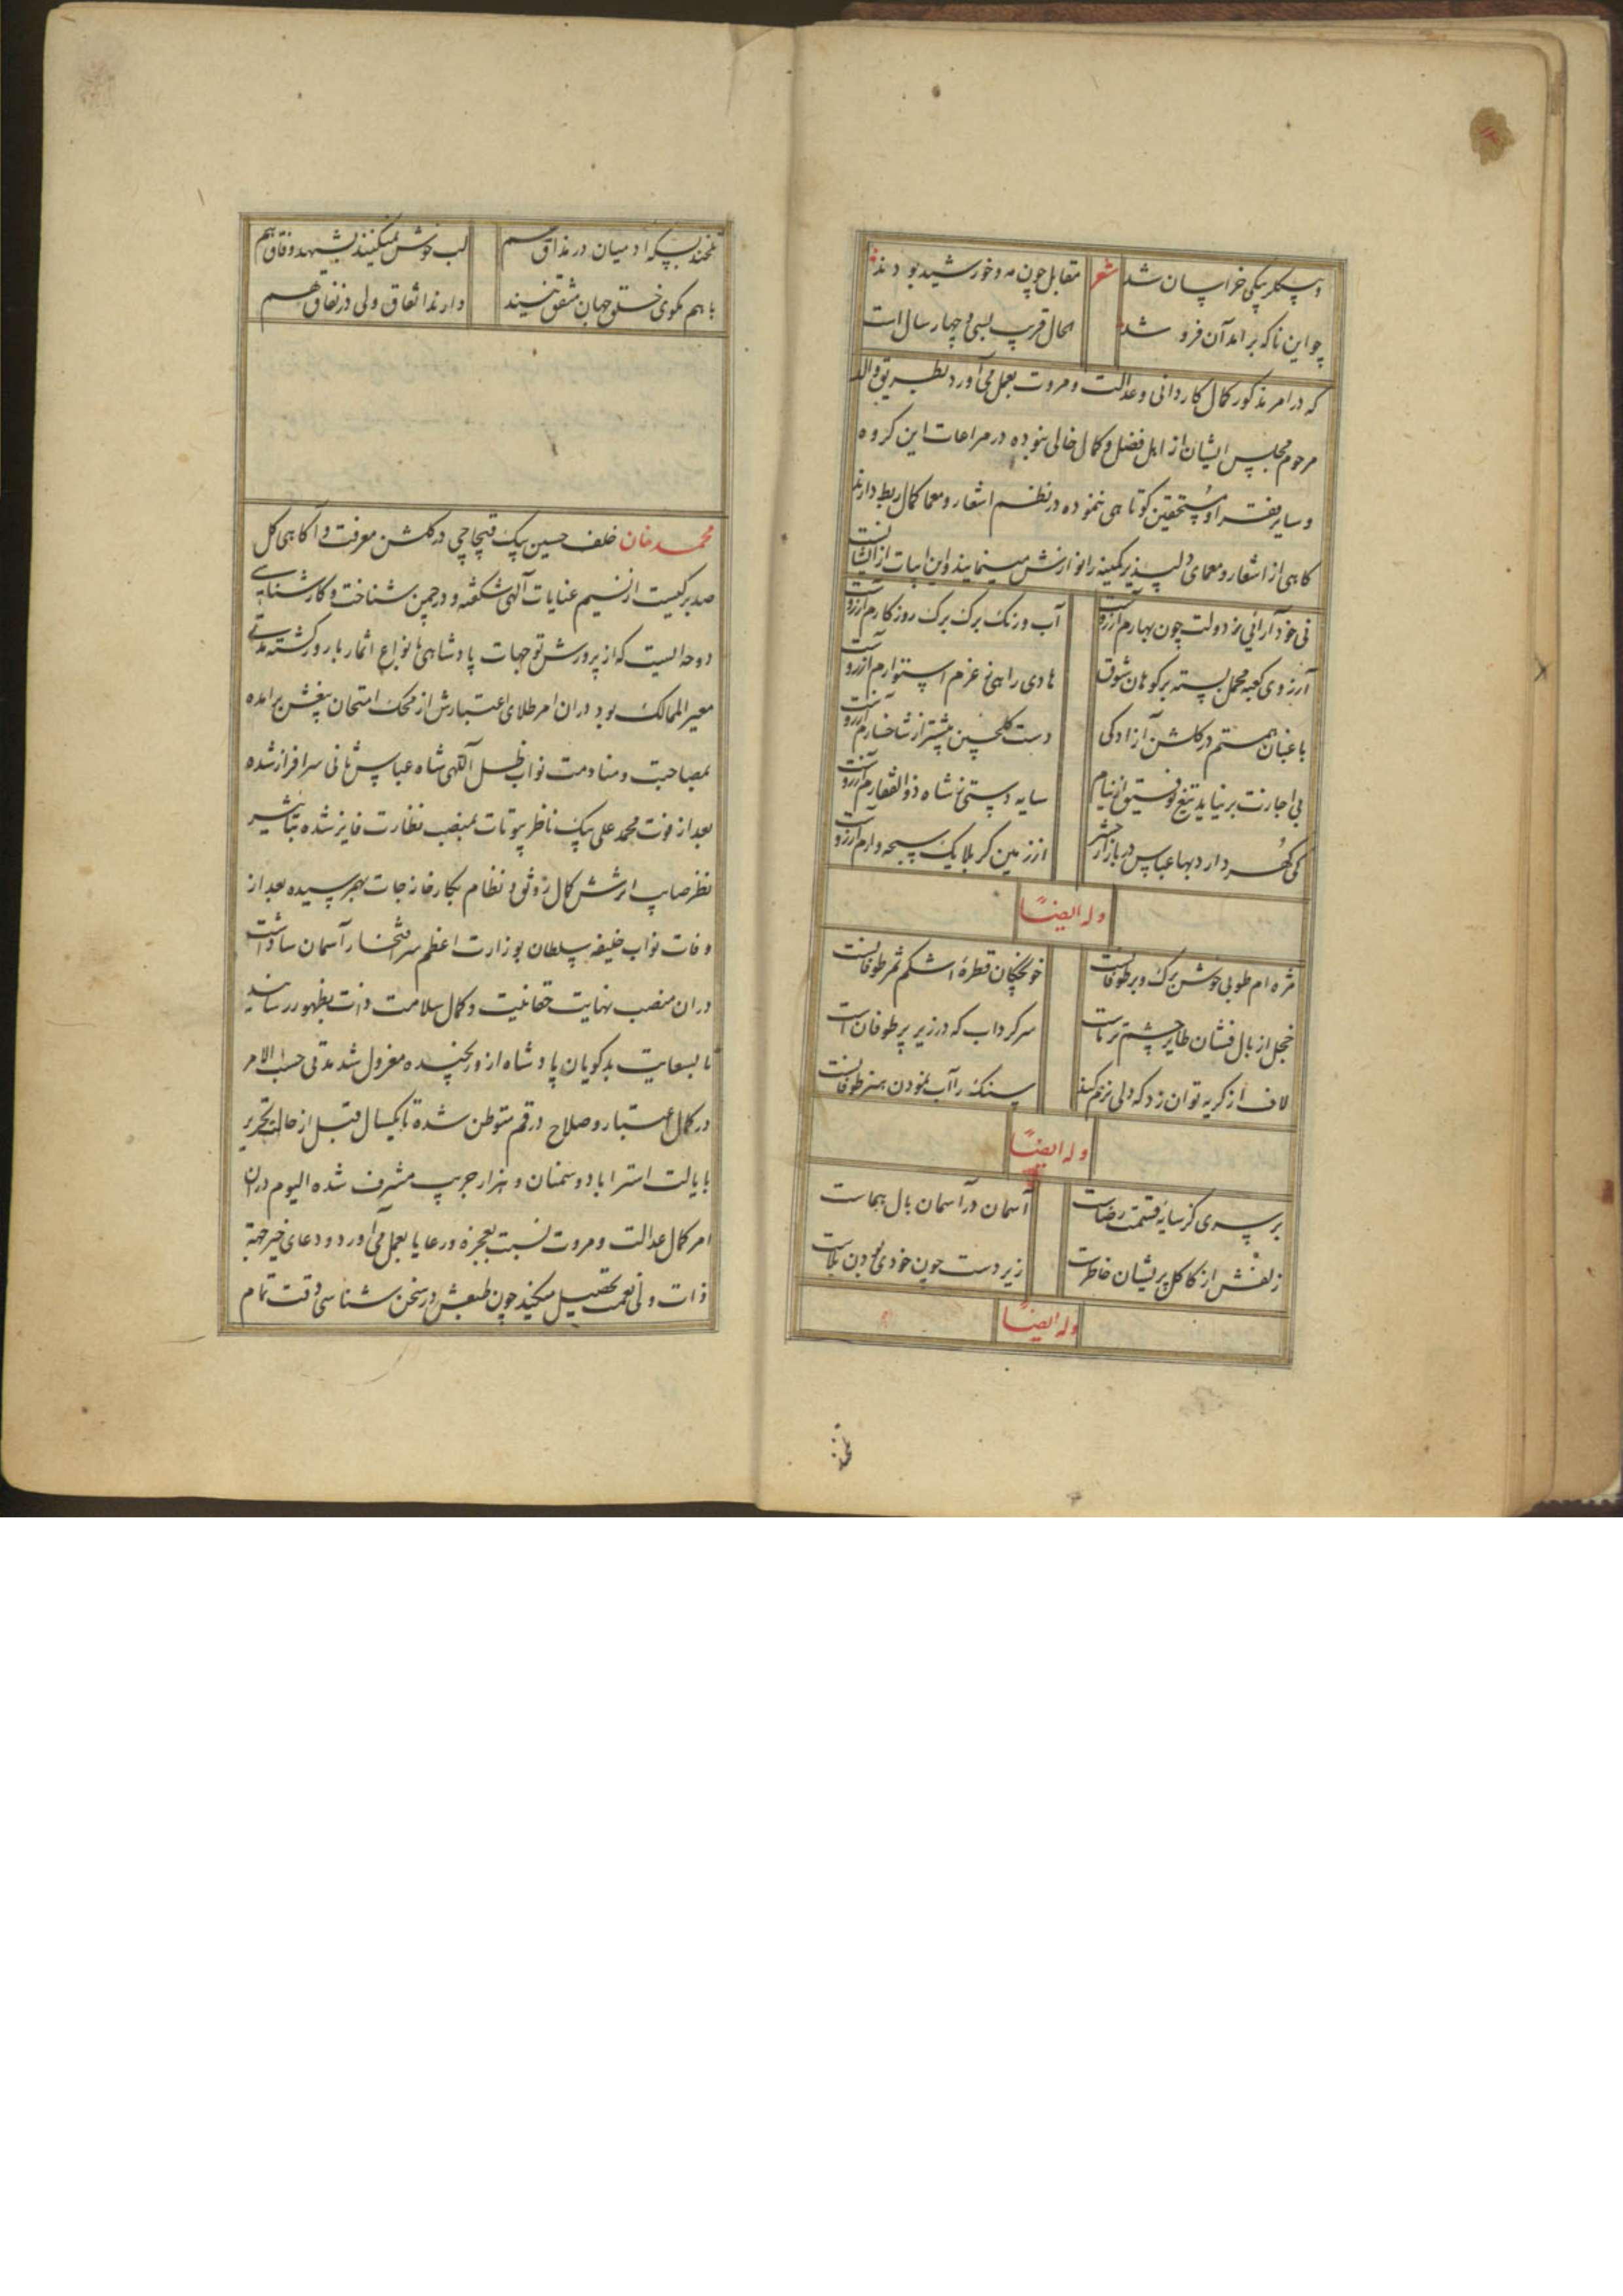 و بیکلربیکی خراسان شد شعر مقابل چون مه و خورشید بودند
چو این ناکه برامد آن فرو شد الحال قریب بسی و چهار سال است
که در امر مذکور کمال کاردانی و عدالت و مروت بعمل می آورد بطریق والد
مرحوم مجلس ایشان از اهل فضل و کمال خالی نبوده در مراعات این کروه
و سایر فقرا و مستحقین کوتاهی ننموده در نظم اشعار و معما کمال ربط دارند
کاهی از اشعار و معمای دلپذیر کمینه را نوازش مینمایند و این ابیات از ایشانست
نی خود آرائی ز دولت چون بهارم آرزوست آب و رنک برک برک روزکارم آرزوست
آرزوی کعبه محمل بسته بر کوهان شوق هادی راهی ز عزم استوارم آرزوست
باغبان همتم در کلشن آزادکی دست کلچین بیشتر از شاخسارم آرزوست
بی اجازت بر نیاید تیغ توفیق از نیام سایه دستی ز شاه ذوالفقارم آرزوست
کی کهر دارد بها عباس در بازار حشر از زمین کربلا یک سبحه وارم آرزوست
وله ایضاً
مژه ام طوبی خوش برک و بر طوفانست خونچکان قطرهٔ اشکم ثمر طوفانست
خجل از بال فشان طایر چشم تر ماست سر کرداب که در زیر پر طوفان است
لاف از کریه توان زد که دلی نرم کند سنک را آب نمودن هنر طوفانست
وله ایضاً
بر سری کز سایه قسمت رضاست آسمان در آسمان بال هماست
زلفش از کاکل پریشان خاطرست زیر دست چون خودی بودن بلاست
وله ایضاً
تلخند بسکه ادمیان در مذاق هم لب خوش نمیکنند بشهد وفاق هم
با هم نکوی خلق جهان متفق نیند دارند اتفاق ولی در نفاق هم
محمد خان خلف حسین بیک قیچاچی در کلشن معرفت و آکاهی کل
صد برکیست از نسیم عنایات آلهی شکفته و در چمن شناخت و کارشناسی
دوحه ایست که از پرورش توجهات پادشاهی بانواع اثمار بارور کشته مدتی
معیر الممالک بود در ان امر طلای اعتبارش از محک امتحان بیغش برامده
بمصاحبت و منادمت نواب ظل آلهی شاه عباس ثانی سرافراز شده
بعد از فوت محمد علی بیک ناظر بیوتات بمنصب نظارت فایز شده بتاثیر
نظر صایب اثرش کمال رونق و نظام بکارخانه جات بهم رسیده بعد از
وفات نواب خلیفه سلطان بوزارت اعظم سر افتخار آسمان سا داشت
در ان منصب نهایت حقانیت و کمال سلامت ذات بظهور رسانید
تا بسعایت بدکویان پادشاه ازو رنجیده معزول شد مدتی حسب الامر
در کمال اعتبار و صلاح در قم متوطن شده تا یکسال قبل از حال تحریر
بایالت استراباد و سمنان و هزار جریب مشرف شده الیوم در ان
امر کمال عدالت و مروت نسبت بعجزه و رعایا بعمل می آورد و دعای خیر جهة
ذات ولی نعمت تحصیل میکند چون طبعش در سخن شناسی دقت تمام